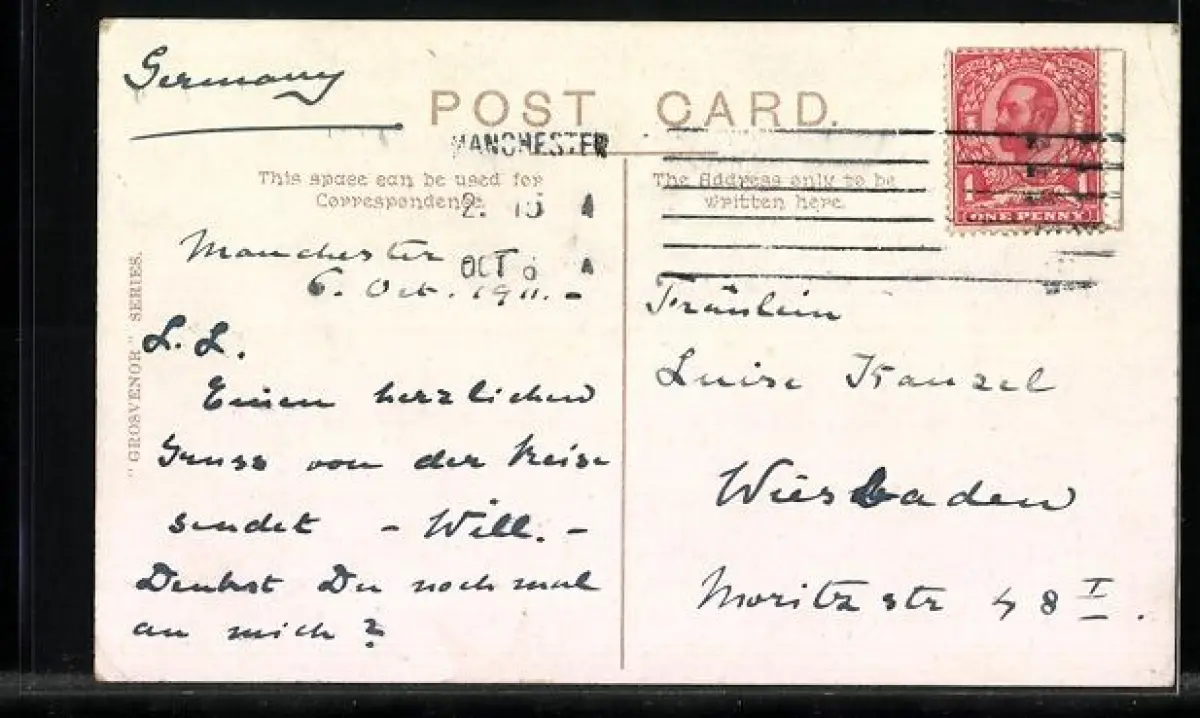 Germany
POST CARD.
MANCHESTER
This space can be used for
Correspondence.
The Address only to be
written here.
2. 15 A
OCT 6
ONE PENNY
"GROSVENOR" SERIES.
Manchester
6. Oct. 1911. -
L. L.
Einen herzlichen
Gruss von der Reise
sendet - Will. -
Denkst Du noch mal
an mich?
Fräulein
Luise Kanzel
Wiesbaden
Moritzstr 48 I.